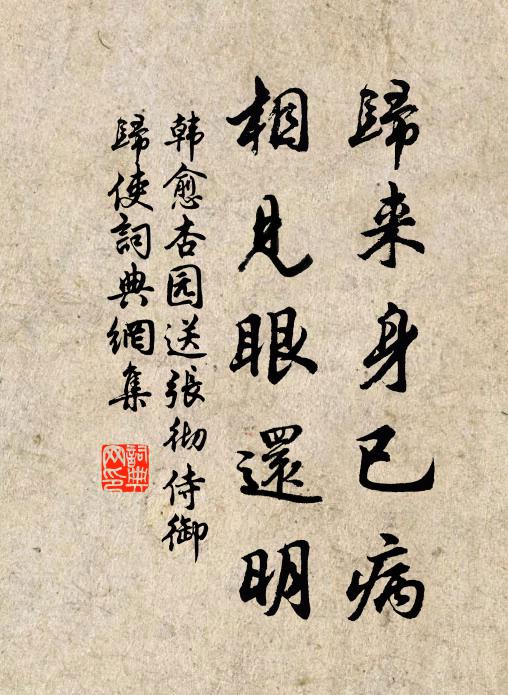 歸来身已病
相見眼還明
韩愈杏园送張彻侍御
歸使詞典網集
詞典
网印